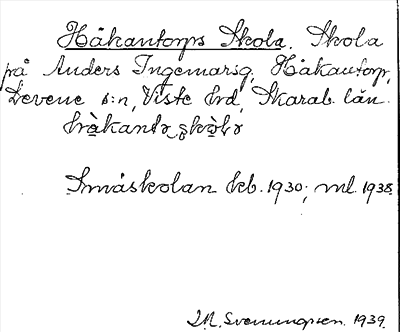 Håkantorps Skola. Skola
på Anders Ingemarsg, Håkantorp,
Levene s:n, Viste hrd, Skarab. län.
Småskolan kb. 1930; ml. 1938.
I.M. Svenungsson. 1939.